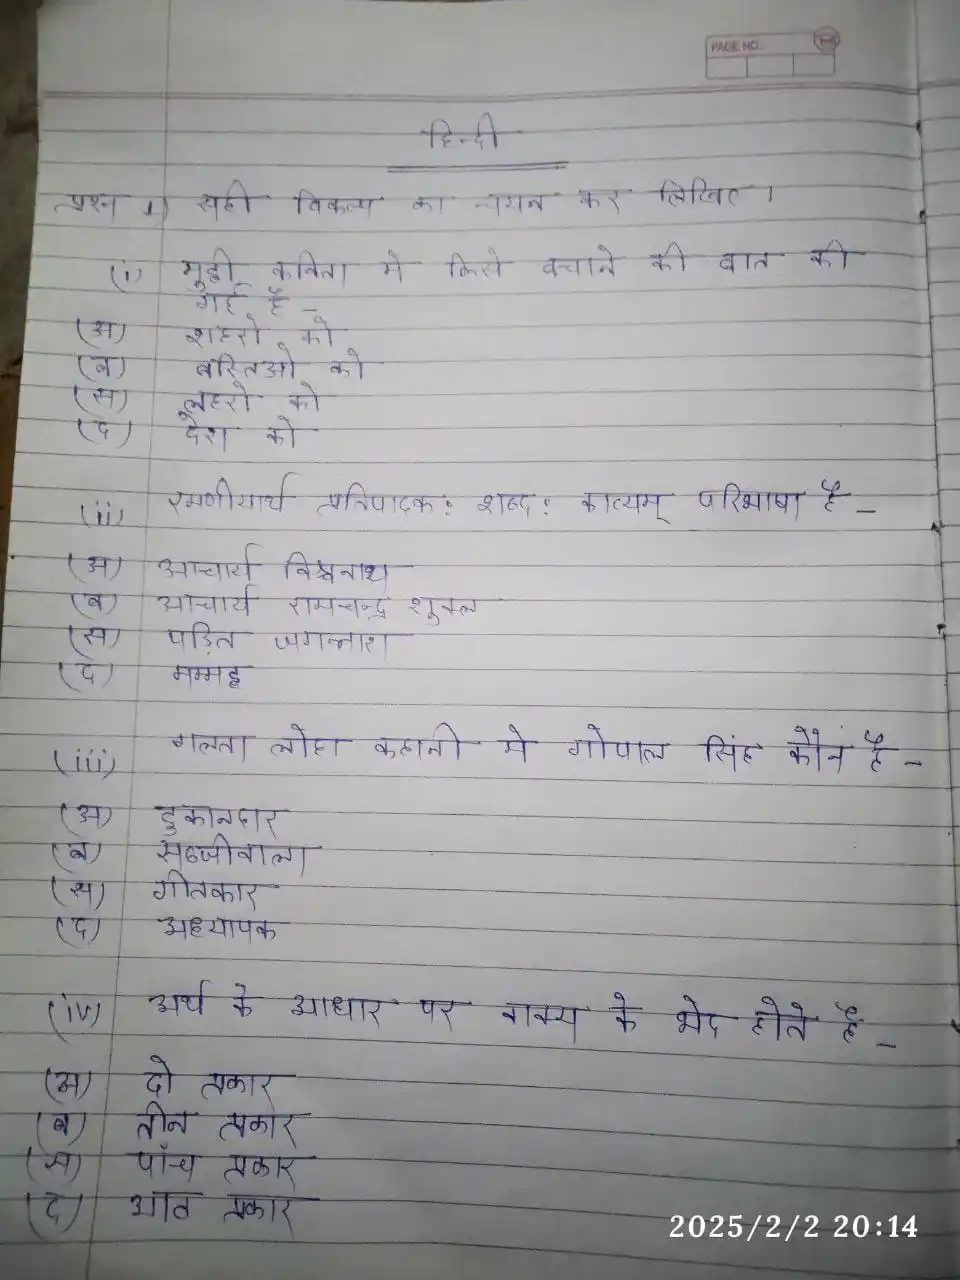 PAGE NO.
हिन्दी
प्रश्न 1) सही विकल्प का चयन कर लिखिए।
(i) मुट्ठी कविता मे किसे बचाने की बात की
गई है -
(अ) शहरो को
(ब) बस्तिओ को
(स) लहरो को
(द) देश को
(ii) रमणीयार्थ प्रतिपादक: शब्द: काव्यम् परिभाषा है -
(अ) आचार्य विश्वनाथ
(ब) आचार्य रामचन्द्र शुक्ल
(स) पड़ित जगन्नाथ
(द) मम्मट
(iii) गलता लोहा कहानी मे गोपाल सिंह कौन है -
(अ) दुकानदार
(ब) सब्जीवाला
(स) गीतकार
(द) अध्यापक
(iv) अर्थ के आधार पर वाक्य के भेद होते है -
(अ) दो प्रकार
(ब) तीन प्रकार
(स) पाँच प्रकार
(द) आठ प्रकार
2025/2/2 20:14